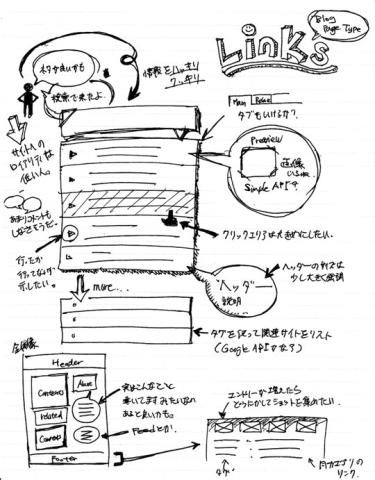 Links
Blog
Page Type
ネタが良いかも
検索で来たよ。
情報をハッキリ
クッキリ
Main
タブもいけるか?
サイトへの
ロイアリティは
低い人。
Preview
画像
Simple API?
あまりコメントも
しなさそうだ。
行ったか
行ってないか
示したい。
クリックエリアは大きめにしたい。
more...
ヘッダー
説明
ヘッダーのサイズは
少し大きく強調
タグを使って関連サイトをリスト
(Google APIかな?)
全体像
Header
Contents
About
related
Footer
実はこんなこと
書いてますみたいなの
あると良いかも。
Feedとか。
エントリーが増えたら
どうにかしてショットを集めたい。
タグ
カテゴリの
リンク.